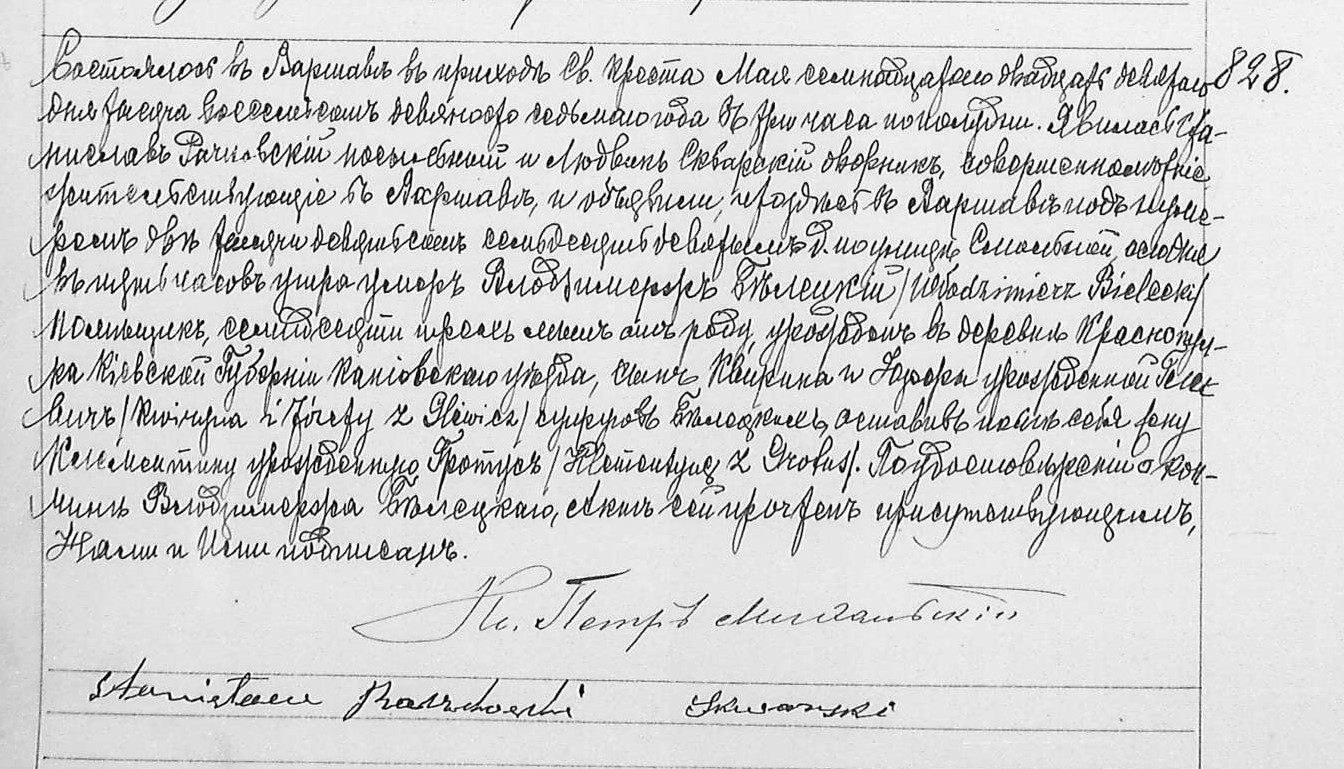 828.
Состоялось въ Варшавѣ въ приходѣ Св. Креста Мая семнадцатаго двадцать девятаго
дня тысяча восемьсотъ девяносто седьмаго года въ три часа пополудни. Явились Ста-
ниславъ Рачковскій и Людвикъ Скварскій дворникъ, совершеннолѣтніе
жительствующіе въ Варшавѣ, и объявили, что въ Варшавѣ подъ нуме-
ромъ двѣ тысячи девятьсотъ семьдесятъ девятымъ д. по улицѣ Смольной
въ часовъ утра умеръ Влодзимержъ Бѣлецкій /Włodzimierz Bielecki/
помѣщикъ, семидесяти трехъ лѣтъ отъ роду, урожденъ въ деревнѣ Краснопур-
ка Кіевской Губерніи Каніовскаго уѣзда, сынъ Квирина и Юзефы урожденной Глие-
вичъ /Kwiryna i Józefy z Gliewicz/ супруговъ Бѣлецкихъ, оставивъ послѣ себя жену
Клементину урожденную Гротусъ /Klementynę z Grotus/. По удостовѣреніи о кон-
чинѣ Влодзимержа Бѣлецкаго, актъ сей прочтенъ присутствующимъ,
Нами и Ими подписанъ.
Кс. Петръ
Stanisław Raczkowski Skwarski